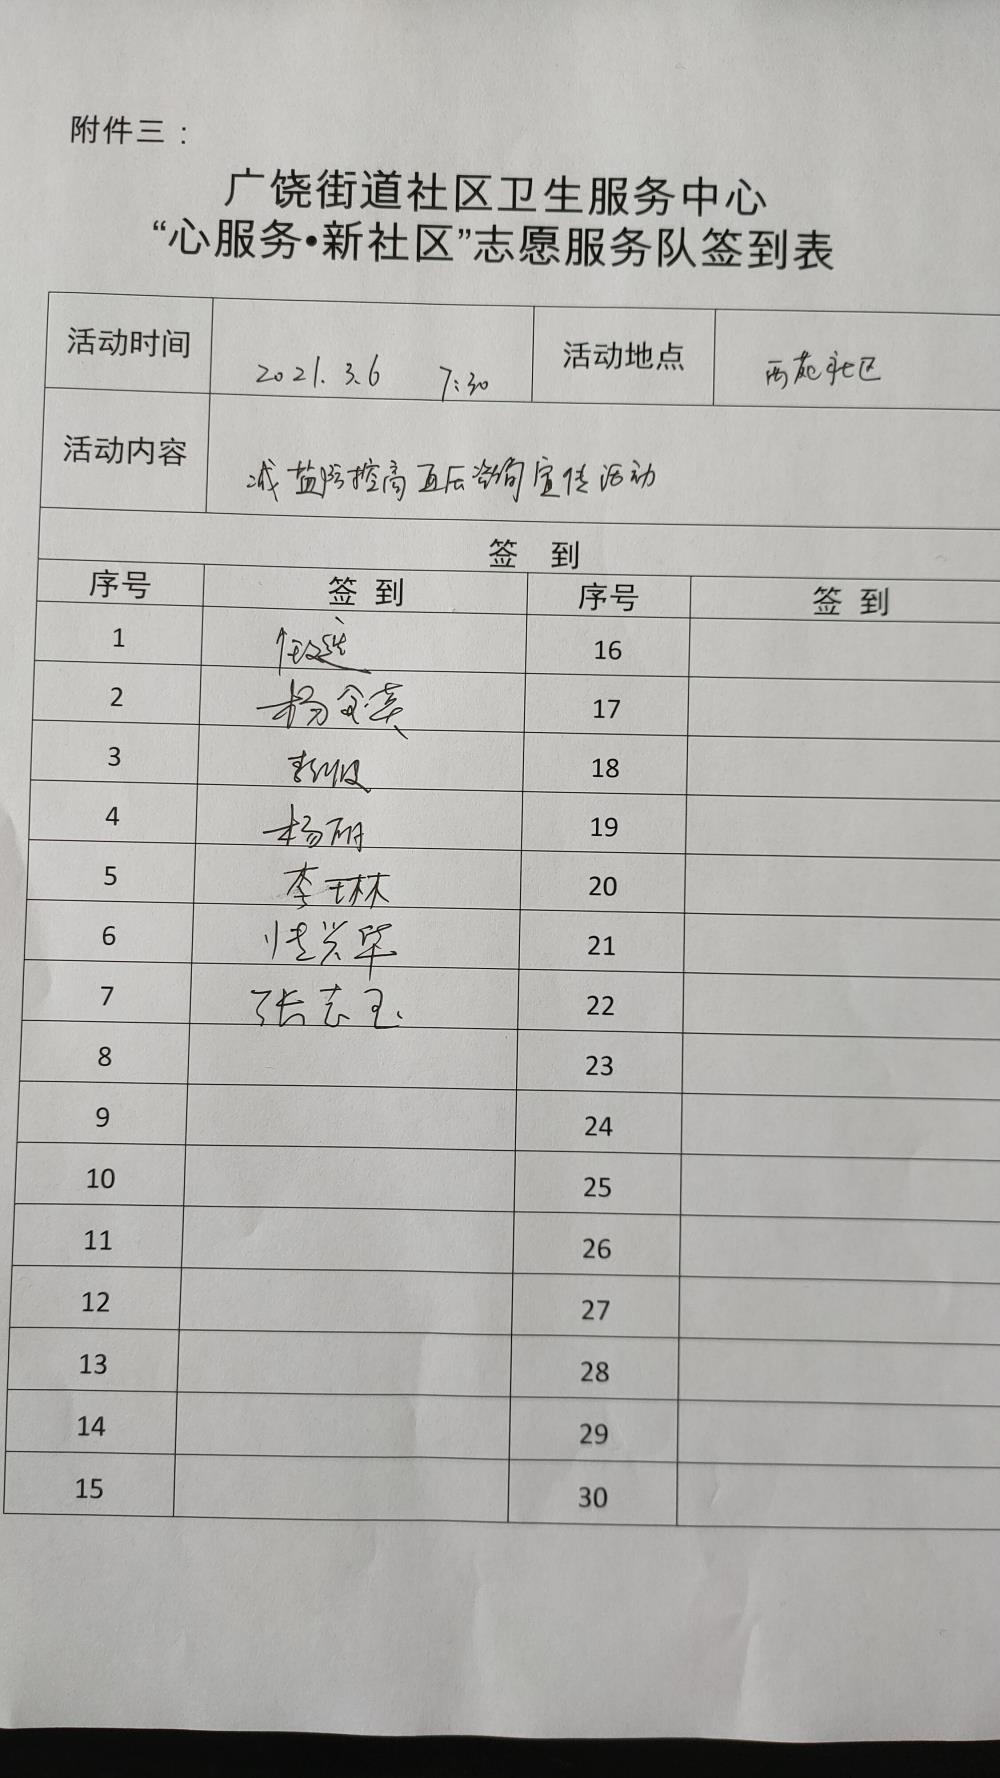 附件三：
广饶街道社区卫生服务中心
“心服务•新社区”志愿服务队签到表
活动时间 2021.3.6 7:30 活动地点 西苑社区
活动内容 减盐防控高血压咨询宣传活动
签 到
序号 签到 序号 签到
1 16
2 杨 17
3 18
4 杨丽 19
5 李玉林 20
6 兴华 21
7 张志玉 22
8 23
9 24
10 25
11 26
12 27
13 28
14 29
15 30